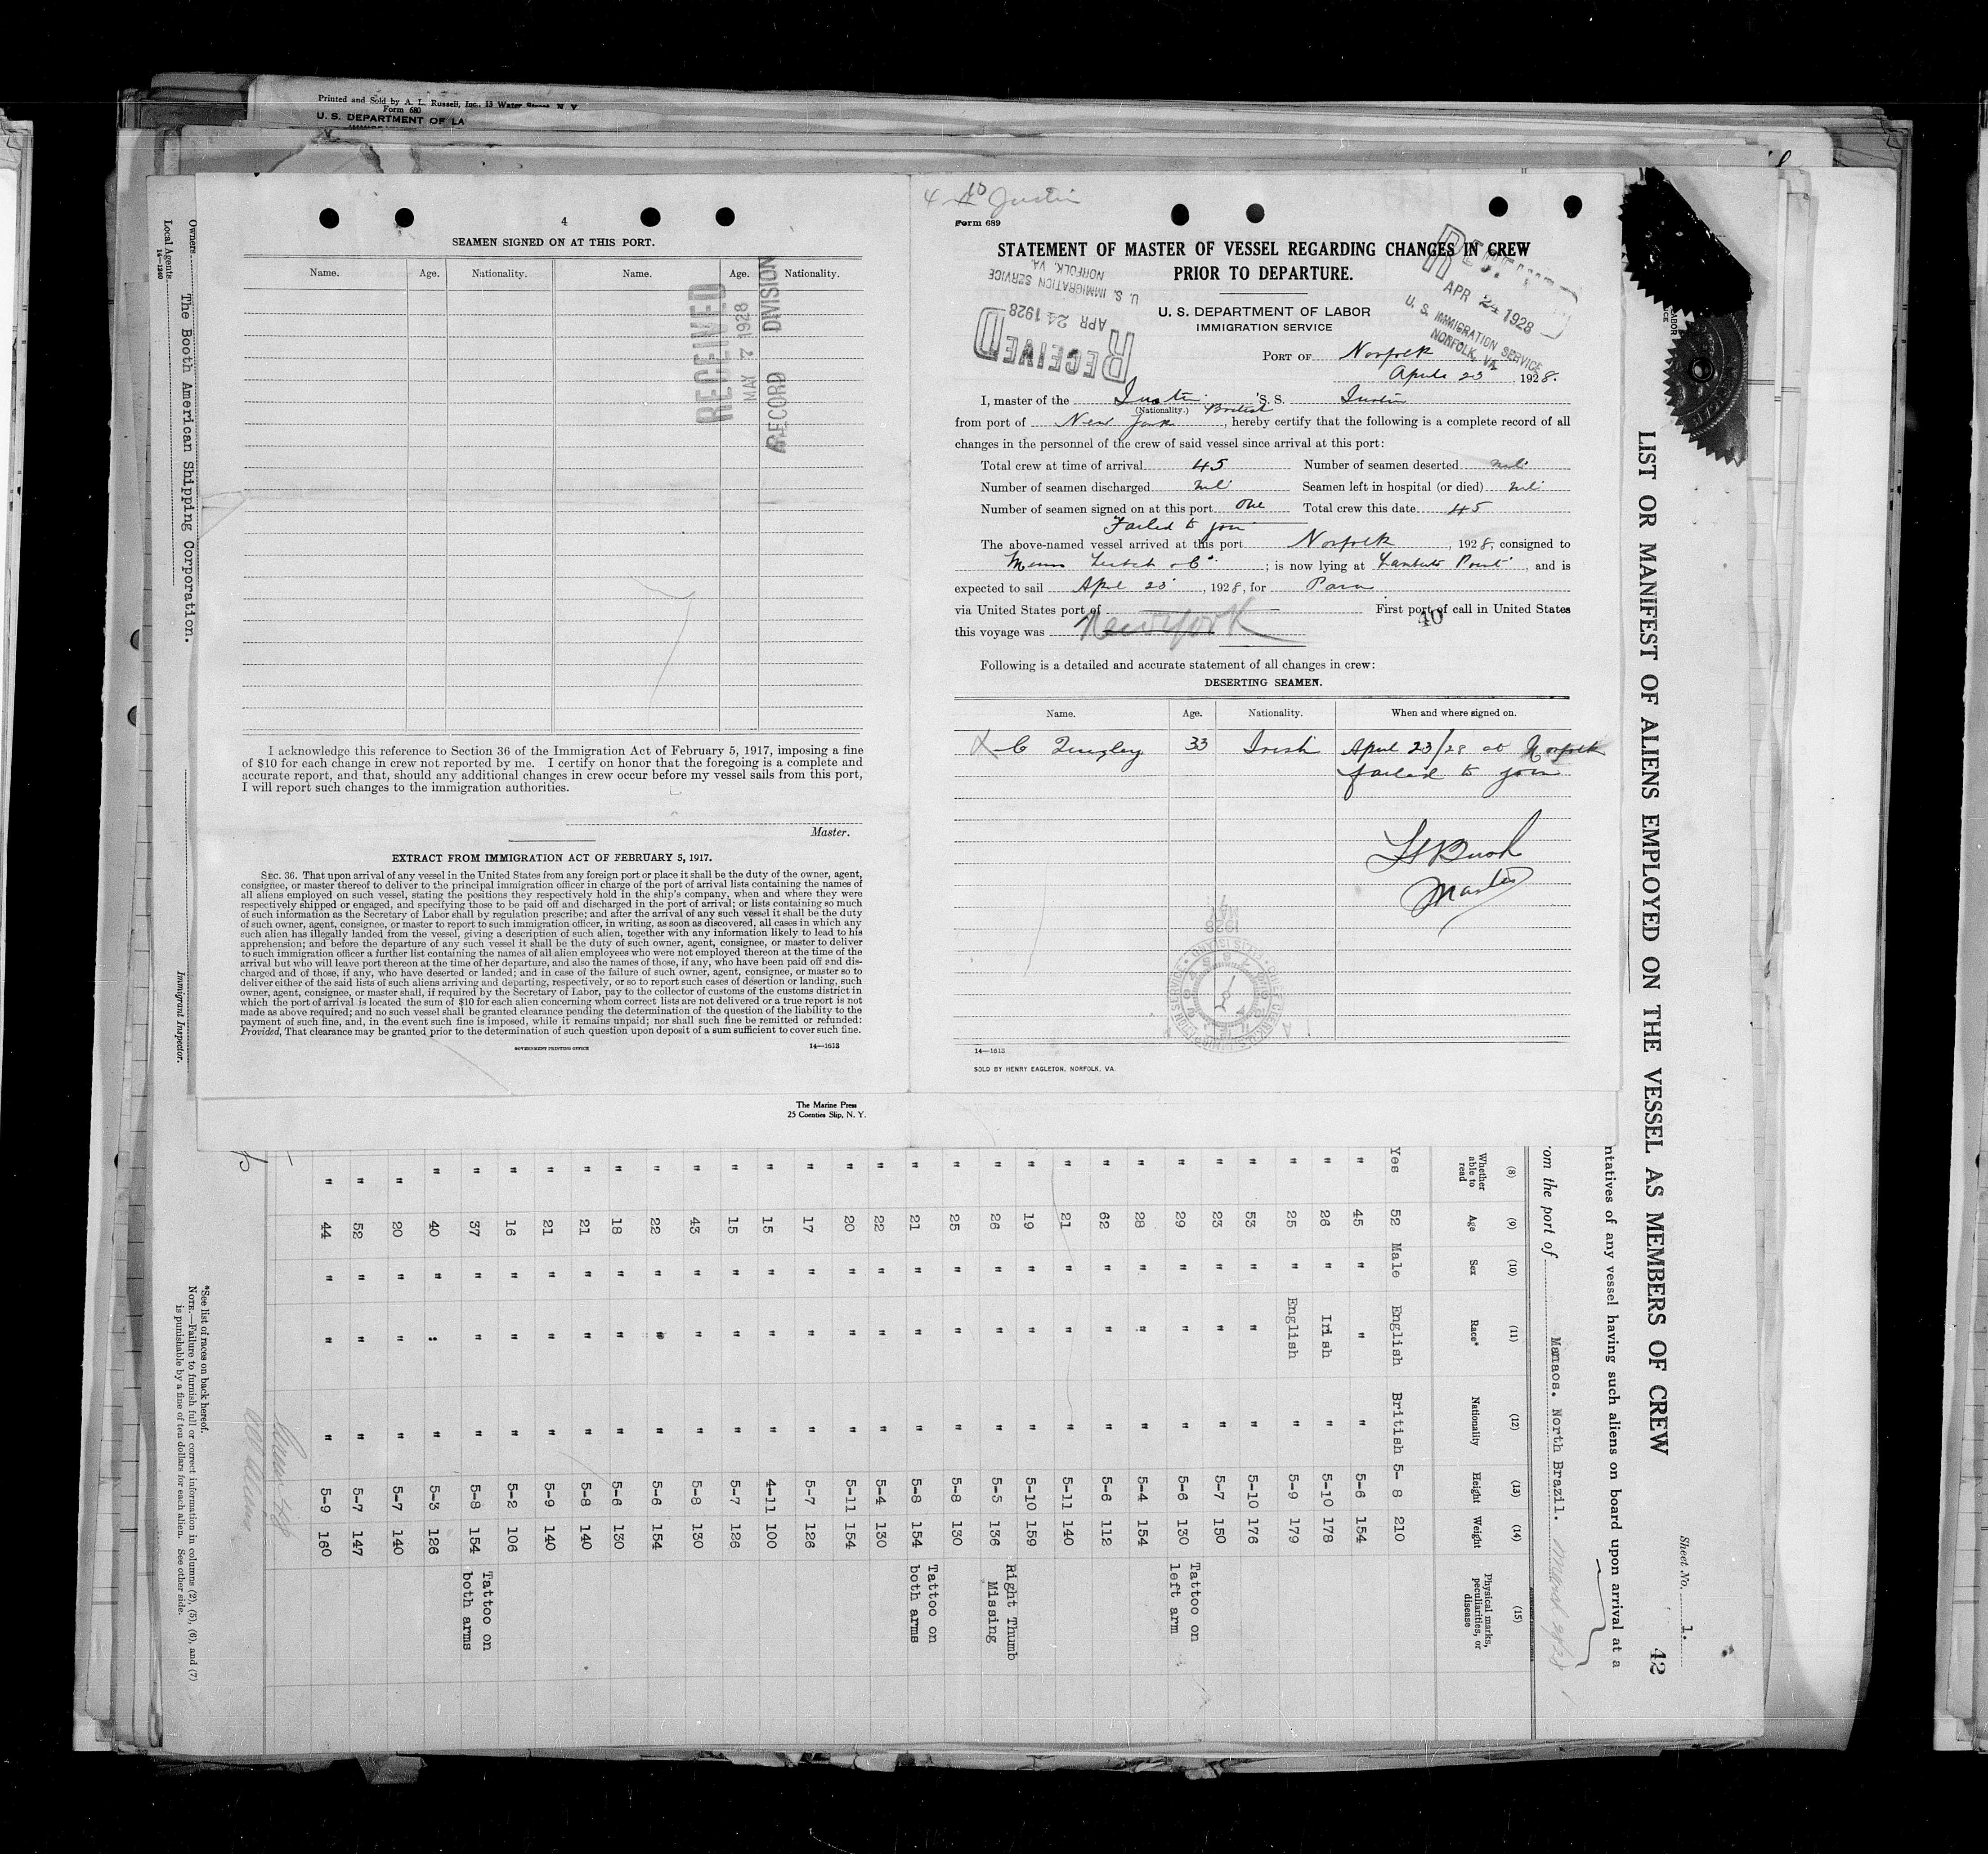 Printed and Sold by A. L. Russell, Inc., 13 Water Street N Y
Form 680
U. S. DEPARTMENT OF LA
Owners
The Booth American Shipping Corporation.
Local Agents
14—1240
Immigrant Inspector.
4
SEAMEN SIGNED ON AT THIS PORT.
Name. Age. Nationality. Name. Age. Nationality.
RECEIVED
MAY 7 1928
RECORD DIVISION
I acknowledge this reference to Section 36 of the Immigration Act of February 5, 1917, imposing a fine
of $10 for each change in crew not reported by me. I certify on honor that the foregoing is a complete and
accurate report, and that, should any additional changes in crew occur before my vessel sails from this port,
I will report such changes to the immigration authorities.
Master.
EXTRACT FROM IMMIGRATION ACT OF FEBRUARY 5, 1917.
SEC. 36. That upon arrival of any vessel in the United States from any foreign port or place it shall be the duty of the owner, agent,
consignee, or master thereof to deliver to the principal immigration officer in charge of the port of arrival lists containing the names of
all aliens employed on such vessel, stating the positions they respectively hold in the ship's company, when and where they were
respectively shipped or engaged, and specifying those to be paid off and discharged in the port of arrival; or lists containing so much
of such information as the Secretary of Labor shall by regulation prescribe; and after the arrival of any such vessel it shall be the duty
of such owner, agent, consignee, or master to report to such immigration officer, in writing, as soon as discovered, all cases in which any
such alien has illegally landed from the vessel, giving a description of such alien, together with any information likely to lead to his
apprehension; and before the departure of any such vessel it shall be the duty of such owner, agent, consignee, or master to deliver
to such immigration officer a further list containing the names of all alien employees who were not employed thereon at the time of the
arrival but who will leave port thereon at the time of her departure, and also the names of those, if any, who have been paid off and dis-
charged and of those, if any, who have deserted or landed; and in case of the failure of such owner, agent, consignee, or master so to
deliver either of the said lists of such aliens arriving and departing, respectively, or so to report such cases of desertion or landing, such
owner, agent, consignee, or master shall, if required by the Secretary of Labor, pay to the collector of customs of the customs district in
which the port of arrival is located the sum of $10 for each alien concerning whom correct lists are not delivered or a true report is not
made as above required; and no such vessel shall be granted clearance pending the determination of the question of the liability to the
payment of such fine, and, in the event such fine is imposed, while it remains unpaid; nor shall such fine be remitted or refunded:
Provided, That clearance may be granted prior to the determination of such question upon deposit of a sum sufficient to cover such fine.
GOVERNMENT PRINTING OFFICE 14—1613
The Marine Press
25 Coenties Slip, N. Y.
Justin
Form 689
STATEMENT OF MASTER OF VESSEL REGARDING CHANGES IN CREW
PRIOR TO DEPARTURE.
U. S. DEPARTMENT OF LABOR
IMMIGRATION SERVICE
RECEIVED
APR 24 1928
U. S. IMMIGRATION SERVICE
NORFOLK, VA.
RECEIVED
APR 24 1928
U. S. IMMIGRATION SERVICE
NORFOLK, VA.
PORT OF Norfolk
April 23, 1928.
I, master of the Justin S. S. Justin
(Nationality.) British
from port of New York, hereby certify that the following is a complete record of all
changes in the personnel of the crew of said vessel since arrival at this port:
Total crew at time of arrival 45 Number of seamen deserted nil
Number of seamen discharged nil Seamen left in hospital (or died) nil
Number of seamen signed on at this port One Total crew this date 45
Failed to join
The above-named vessel arrived at this port Norfolk, 1928, consigned to
Messrs & Co; is now lying at Lamberts Point, and is
expected to sail April 23, 1928, for Para
via United States port of First port of call in United States
40
this voyage was New York
Following is a detailed and accurate statement of all changes in crew:
DESERTING SEAMEN.
Name. Age. Nationality. When and where signed on.
C 33 Irish April 23/28 at Norfolk
failed to join
Master
MAY
1928
14—1613
SOLD BY HENRY EAGLETON, NORFOLK, VA.
LIST OR MANIFEST OF ALIENS EMPLOYED ON THE VESSEL AS MEMBERS OF CREW
Sheet No. 1.
42
ntatives of any vessel having such aliens on board upon arrival at a
rom the port of Manaos. North Brazil.
(8) (9) (10) (11) (12) (13) (14) (15)
Whether able to read Age Sex Race* Nationality Height Weight Physical marks, peculiarities, or disease
Yes 52 Male English British 5-8 210
" 45 " " " 5-6 154
" 26 " Irish " 5-10 178
" 25 " English " 5-9 179
" 53 " " " 5-10 176
" 23 " " " 5-7 150
" 29 " " " 5-6 130 Tattoo on left arm
" 28 " " " 5-4 154
" 62 " " " 5-6 112
" 21 " " " 5-11 140
" 19 " " " 5-10 159
" 26 " " " 5-5 136 Right Thumb Missing
" 25 " " " 5-8 130
" 21 " " " 5-8 154 Tattoo on both arms
" 22 " " " 5-4 130
" 20 " " " 5-11 154
" 17 " " " 5-7 126
" 15 " " " 4-11 100
" 15 " " " 5-7 126
" 43 " " " 5-8 130
" 22 " " " 5-6 154
" 18 " " " 5-6 130
" 21 " " " 5-8 140
" 21 " " " 5-9 140
" 16 " " " 5-2 106
" 37 " " " 5-8 154 Tattoo on both arms
" 40 " " " 5-3 126
" 20 " " " 5-7 140
" 52 " " " 5-7 147
" 44 " " " 5-9 160
*See list of races on back hereof.
NOTE.—Failure to furnish full or correct information in columns (2), (5), (6), and (7)
is punishable by a fine of ten dollars for each alien. See other side.